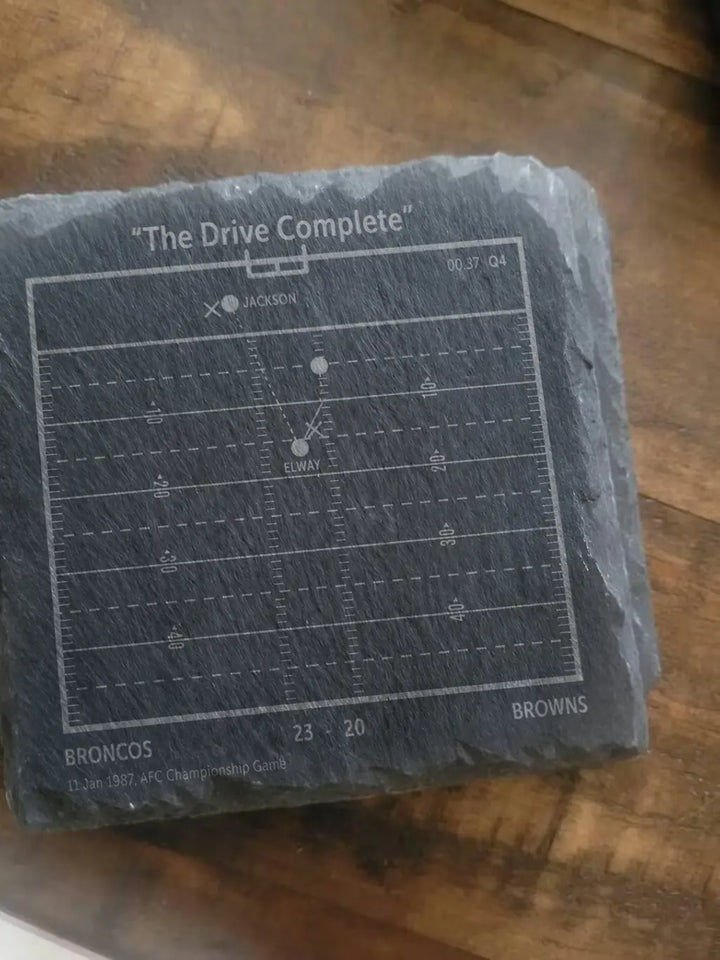 “The Drive Complete”
00.37 Q4
JACKSON
10 10
ELWAY
20 20
30 30
40 40
BRONCOS 23 - 20 BROWNS
11 Jan 1987, AFC Championship Game